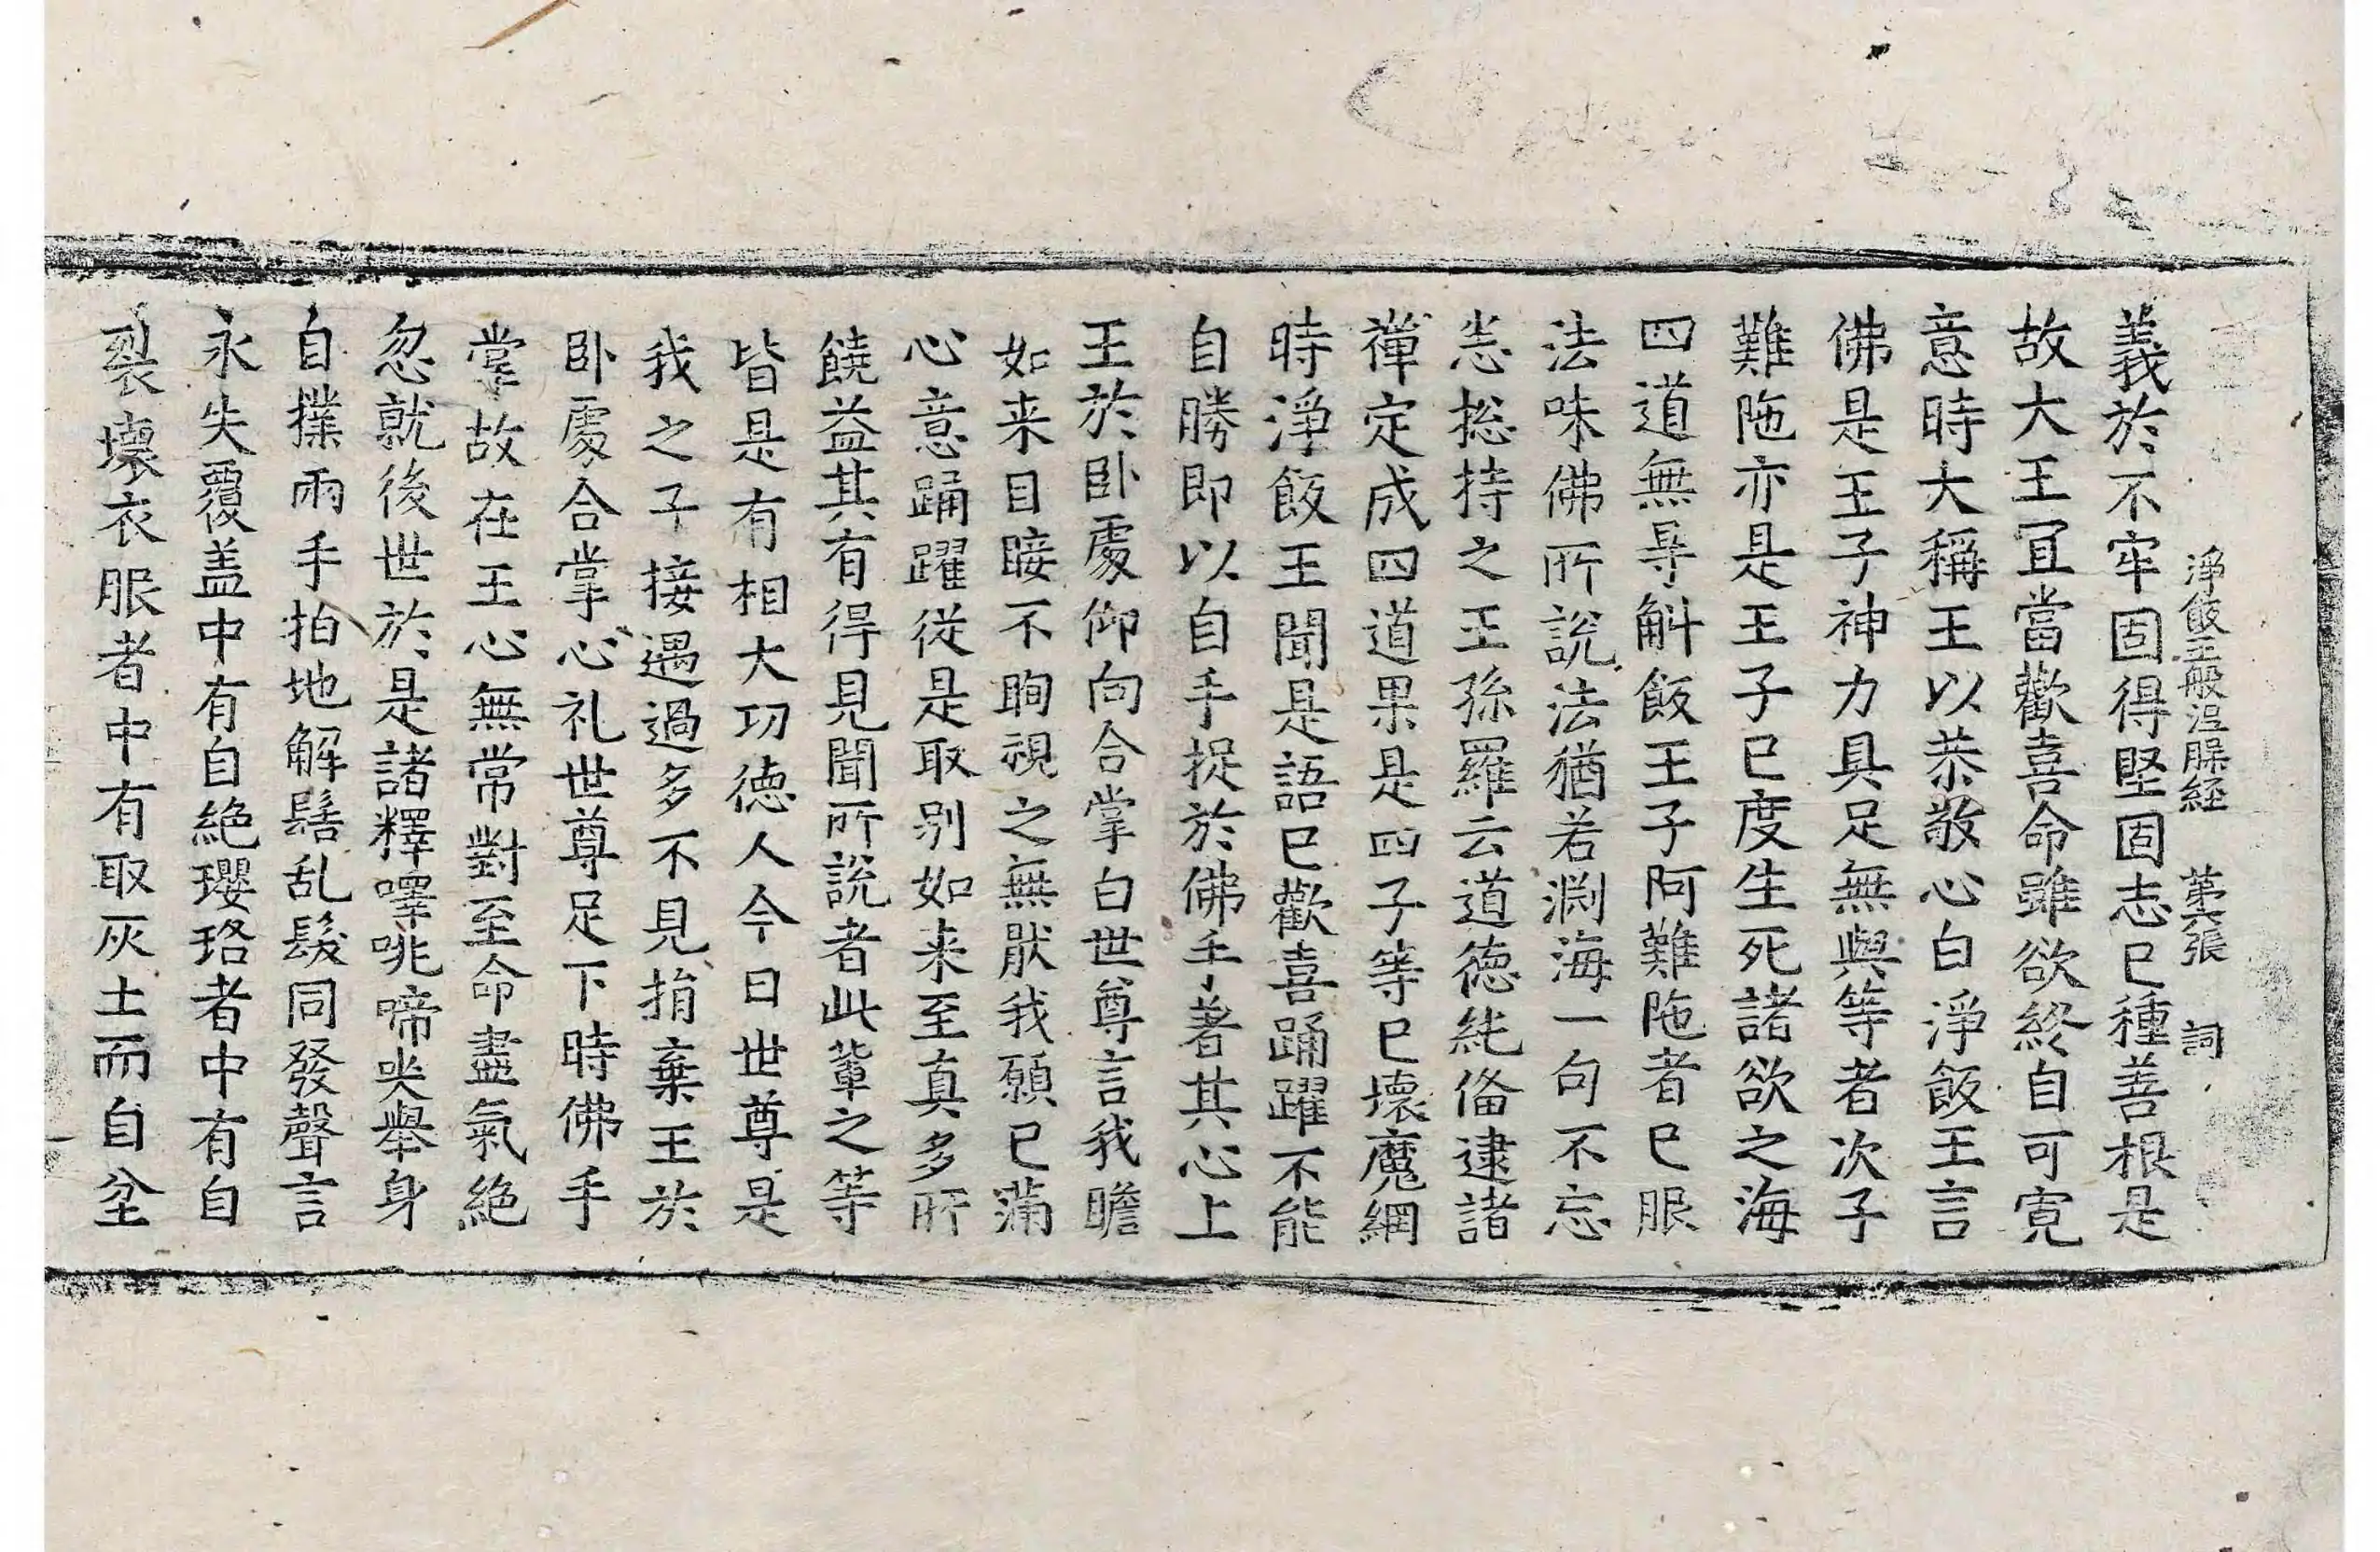 淨飯王般涅槃経 第六張 詞
義於不牢固得堅固志已種善根是
故大王冝當歡喜命雖欲終自可寛
意時大稱王以恭敬心白淨飯王言
佛是王子神力具足無與等者次子
難陁亦是王子已度生死諸欲之海
四道無㝵斛飯王子阿難陁者已服
法味佛所說法猶若淵海一句不忘
悉揔持之王孫羅云道德純俻逮諸
禪定成四道果是四子等已壞魔網
時淨飯王聞是語已歡喜踊躍不能
自勝即以自手捉於佛手著其心上
王於卧處仰向合掌白世尊言我瞻
如来目睫不眴視之無猒我願已滿
心意踊躍從是取別如来至真多所
饒益其有得見聞所說者此輩之等
皆是有相大功德人今日世尊是
我之子接遇過多不見捐棄王於
卧處合掌心礼世尊足下時佛手
掌故在王心無常對至命盡氣絶
忽就後世於是諸釋㘁咷啼哭舉身
自撲兩手拍地解髻乱髮同發聲言
永失覆盖中有自絶瓔珞者中有自
裂壞衣服者中有取灰土而自坌